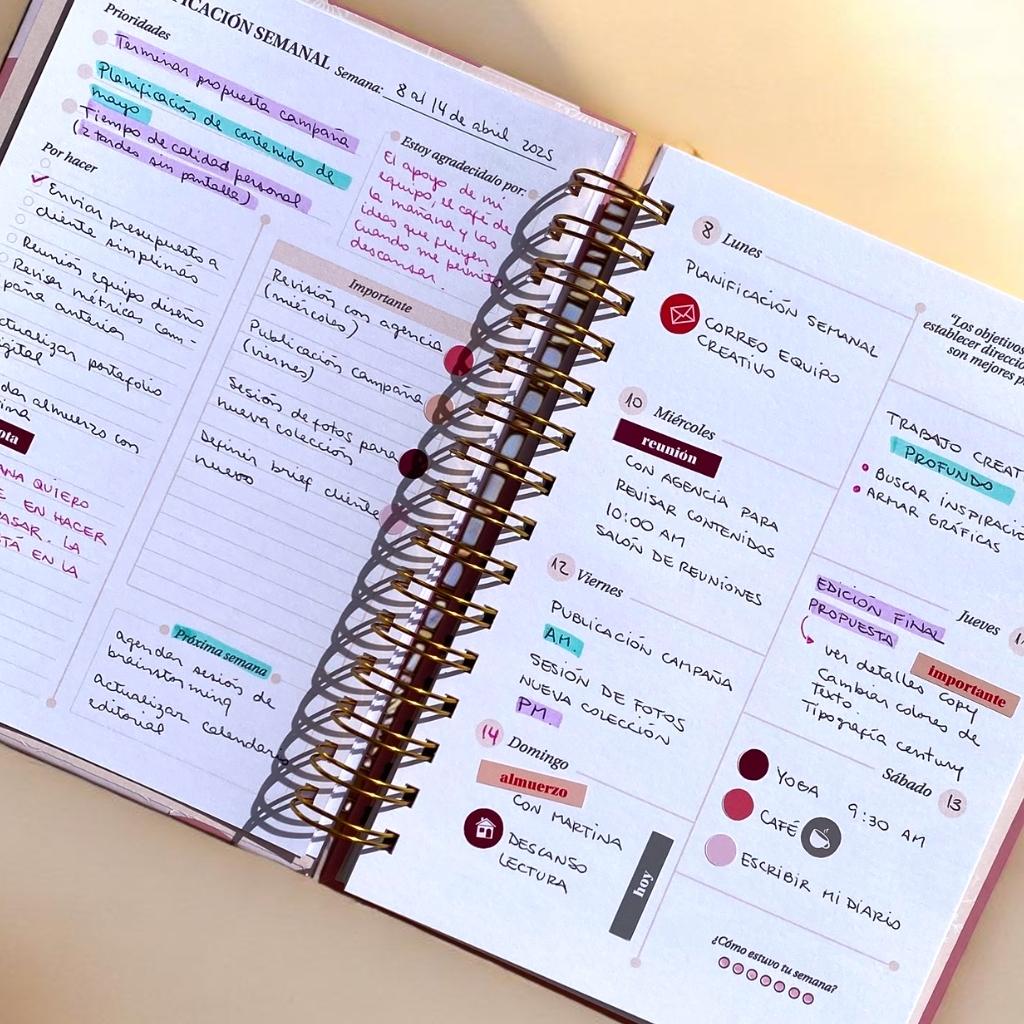 IFICACIÓN SEMANAL
Semana: 8 al 14 de abril 2025
Prioridades
Terminar propuesta campaña
Planificación de contenido de
mayo
Tiempo de calidad personal
(2 tardes sin pantalla)
Estoy agradecida/o por:
El apoyo de mi
equipo, el café de
la mañana y las
ideas que fluyen
cuando me permito
descansar.
Por hacer
Enviar presupuesto a
cliente simplinás
Reunión equipo diseño
Revisar métricas cam-
paña anterior
ctualizar portafolio
igital
dar almuerzo con
ina
ota
ANA QUIERO
E EN HACER
PASAR. LA
TÁ EN LA
Importante
Revisión con agencia
(miércoles)
Publicación campaña
(viernes)
Sesión de fotos para
nueva colección
Definir brief cliente
nuevo
Próxima semana
agendar sesión de
brainstorming
actualizar calendario
editorial
8 Lunes
PLANIFICACIÓN SEMANAL
CORREO EQUIPO
CREATIVO
10 Miércoles
reunión
CON AGENCIA PARA
REVISAR CONTENIDOS
10:00 AM
SALÓN DE REUNIONES
12 Viernes
PUBLICACIÓN CAMPAÑA
AM.
SESIÓN DE FOTOS
NUEVA COLECCIÓN
PM.
14 Domingo
almuerzo
CON MARTINA
DESCANSO
LECTURA
hoy
"Los objetivos
establecer direcci
son mejores p
TRABAJO CREAT
PROFUNDO
BUSCAR INSPIRACIÓ
ARMAR GRÁFICAS
Jueves 1
EDICIÓN FINAL
PROPUESTA
importante
ver detalles copy
Cambiar colores de
Texto
Tipografía century
Sábado 13
YOGA 9:30 AM
CAFÉ
ESCRIBIR MI DIARIO
¿Cómo estuvo tu semana?